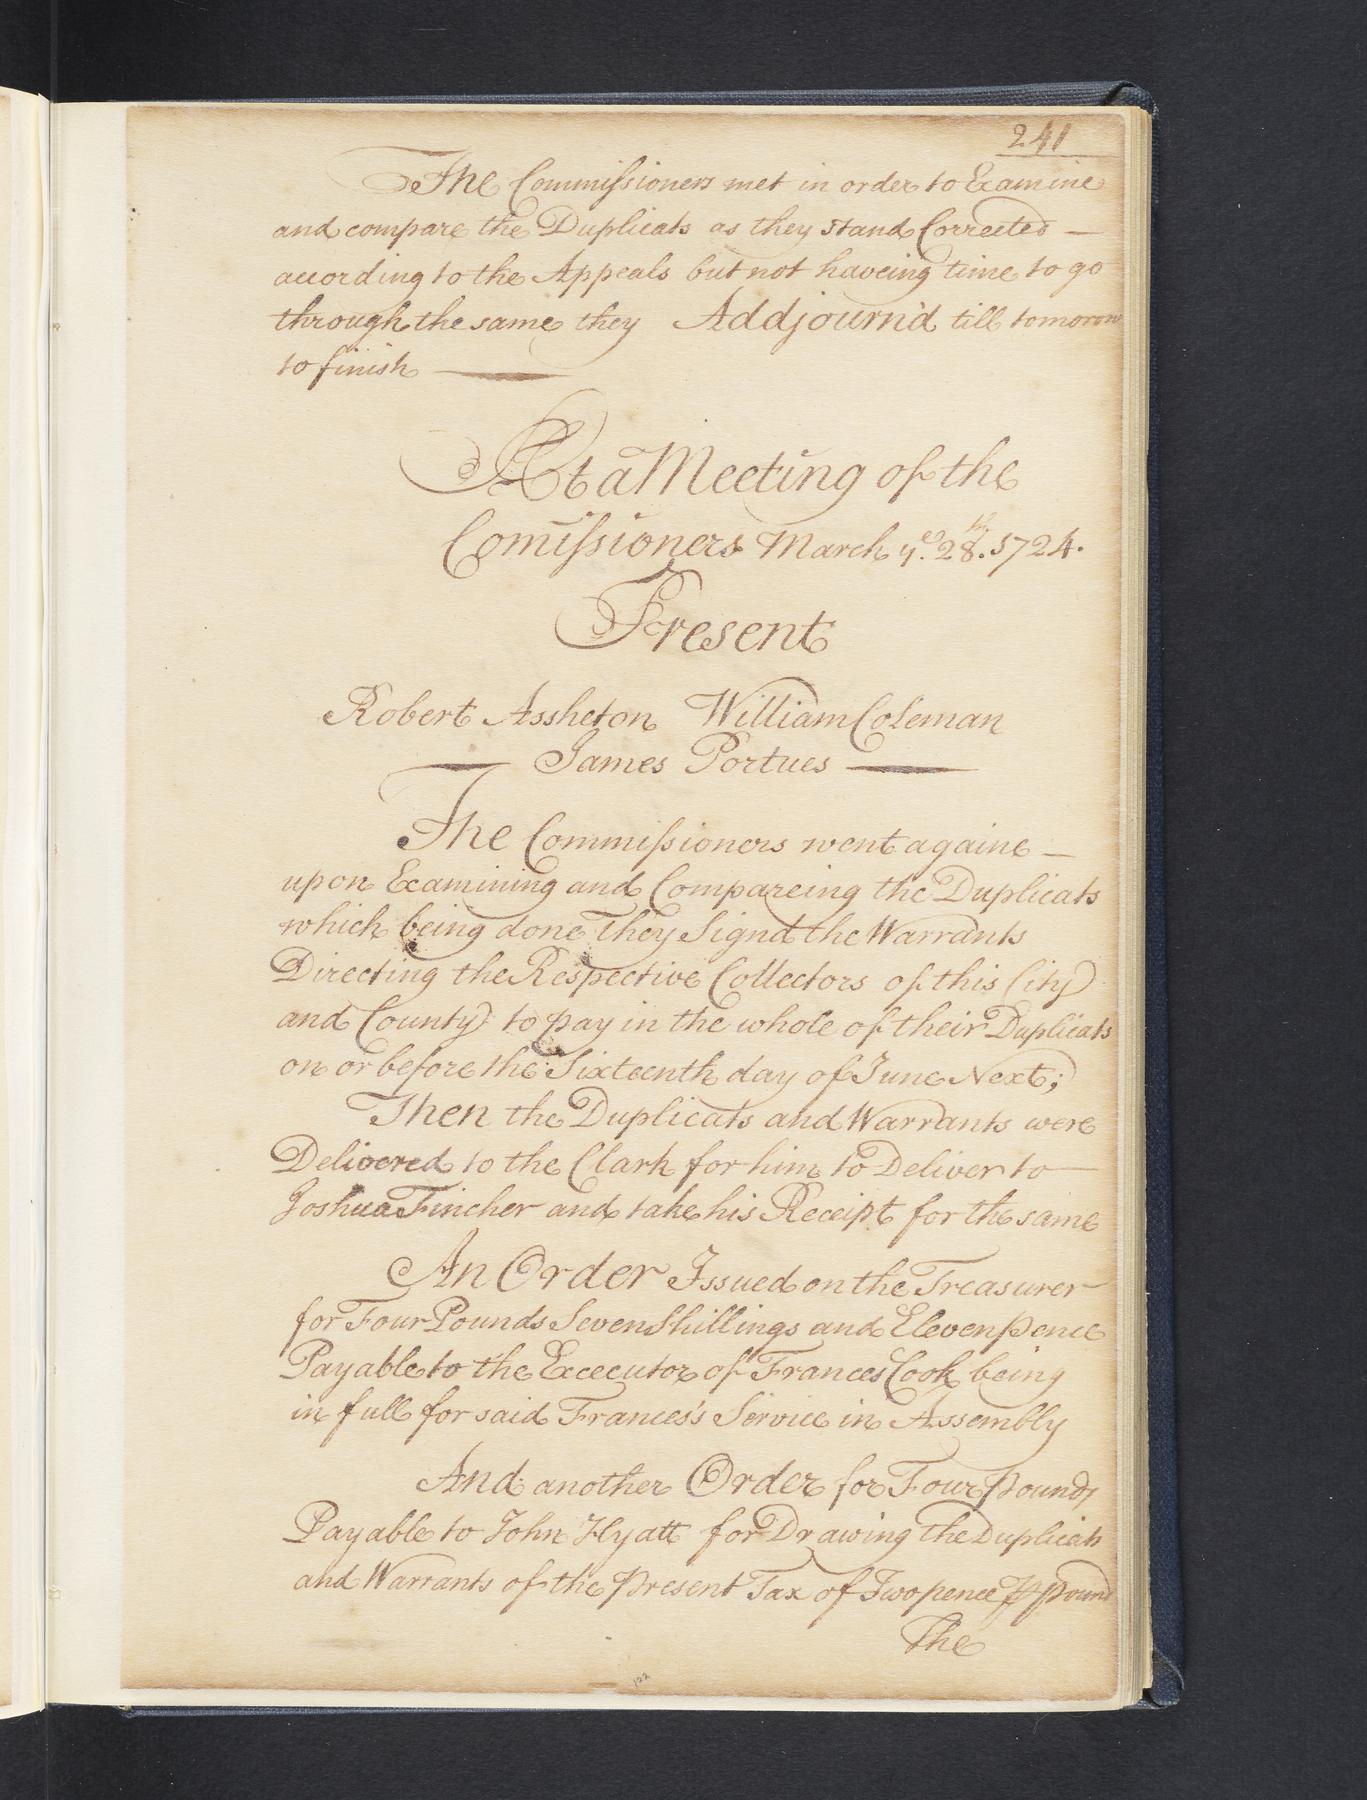 241
The Commissioners met in order to Examine
and compare the Duplicats as they stand Corrected —
according to the Appeals but not haveing time to go
through the same they Addjourn'd till tomorow
to finish —
At a Meeting of the
Comissioners March ye. 28th. 1724.
Present
Robert Assheton William Coleman
— James Portues —
The Commissioners went againe —
upon Examining and Compareing the Duplicats
which being done They Signd the Warrants
Directing the Respective Collectors of this City
and County to pay in the whole of their Duplicats
on or before the Sixteenth day of June Next;
Then the Duplicats and Warrants were
Delivered to the Clark for him to Deliver to —
Joshua Fincher and take his Receipt for the same
An Order Issued on the Treasurer
for Four Pounds Seven Shillings and Eleven pence
Payable to the Excecutor of Frances Cook being
in full for said Frances's Service in Assembly
And another Order for Four pounds
Payable to John Hyatt for Drawing the Duplicats
and Warrants of the present Tax of Two pence ⅌ pound
The
122